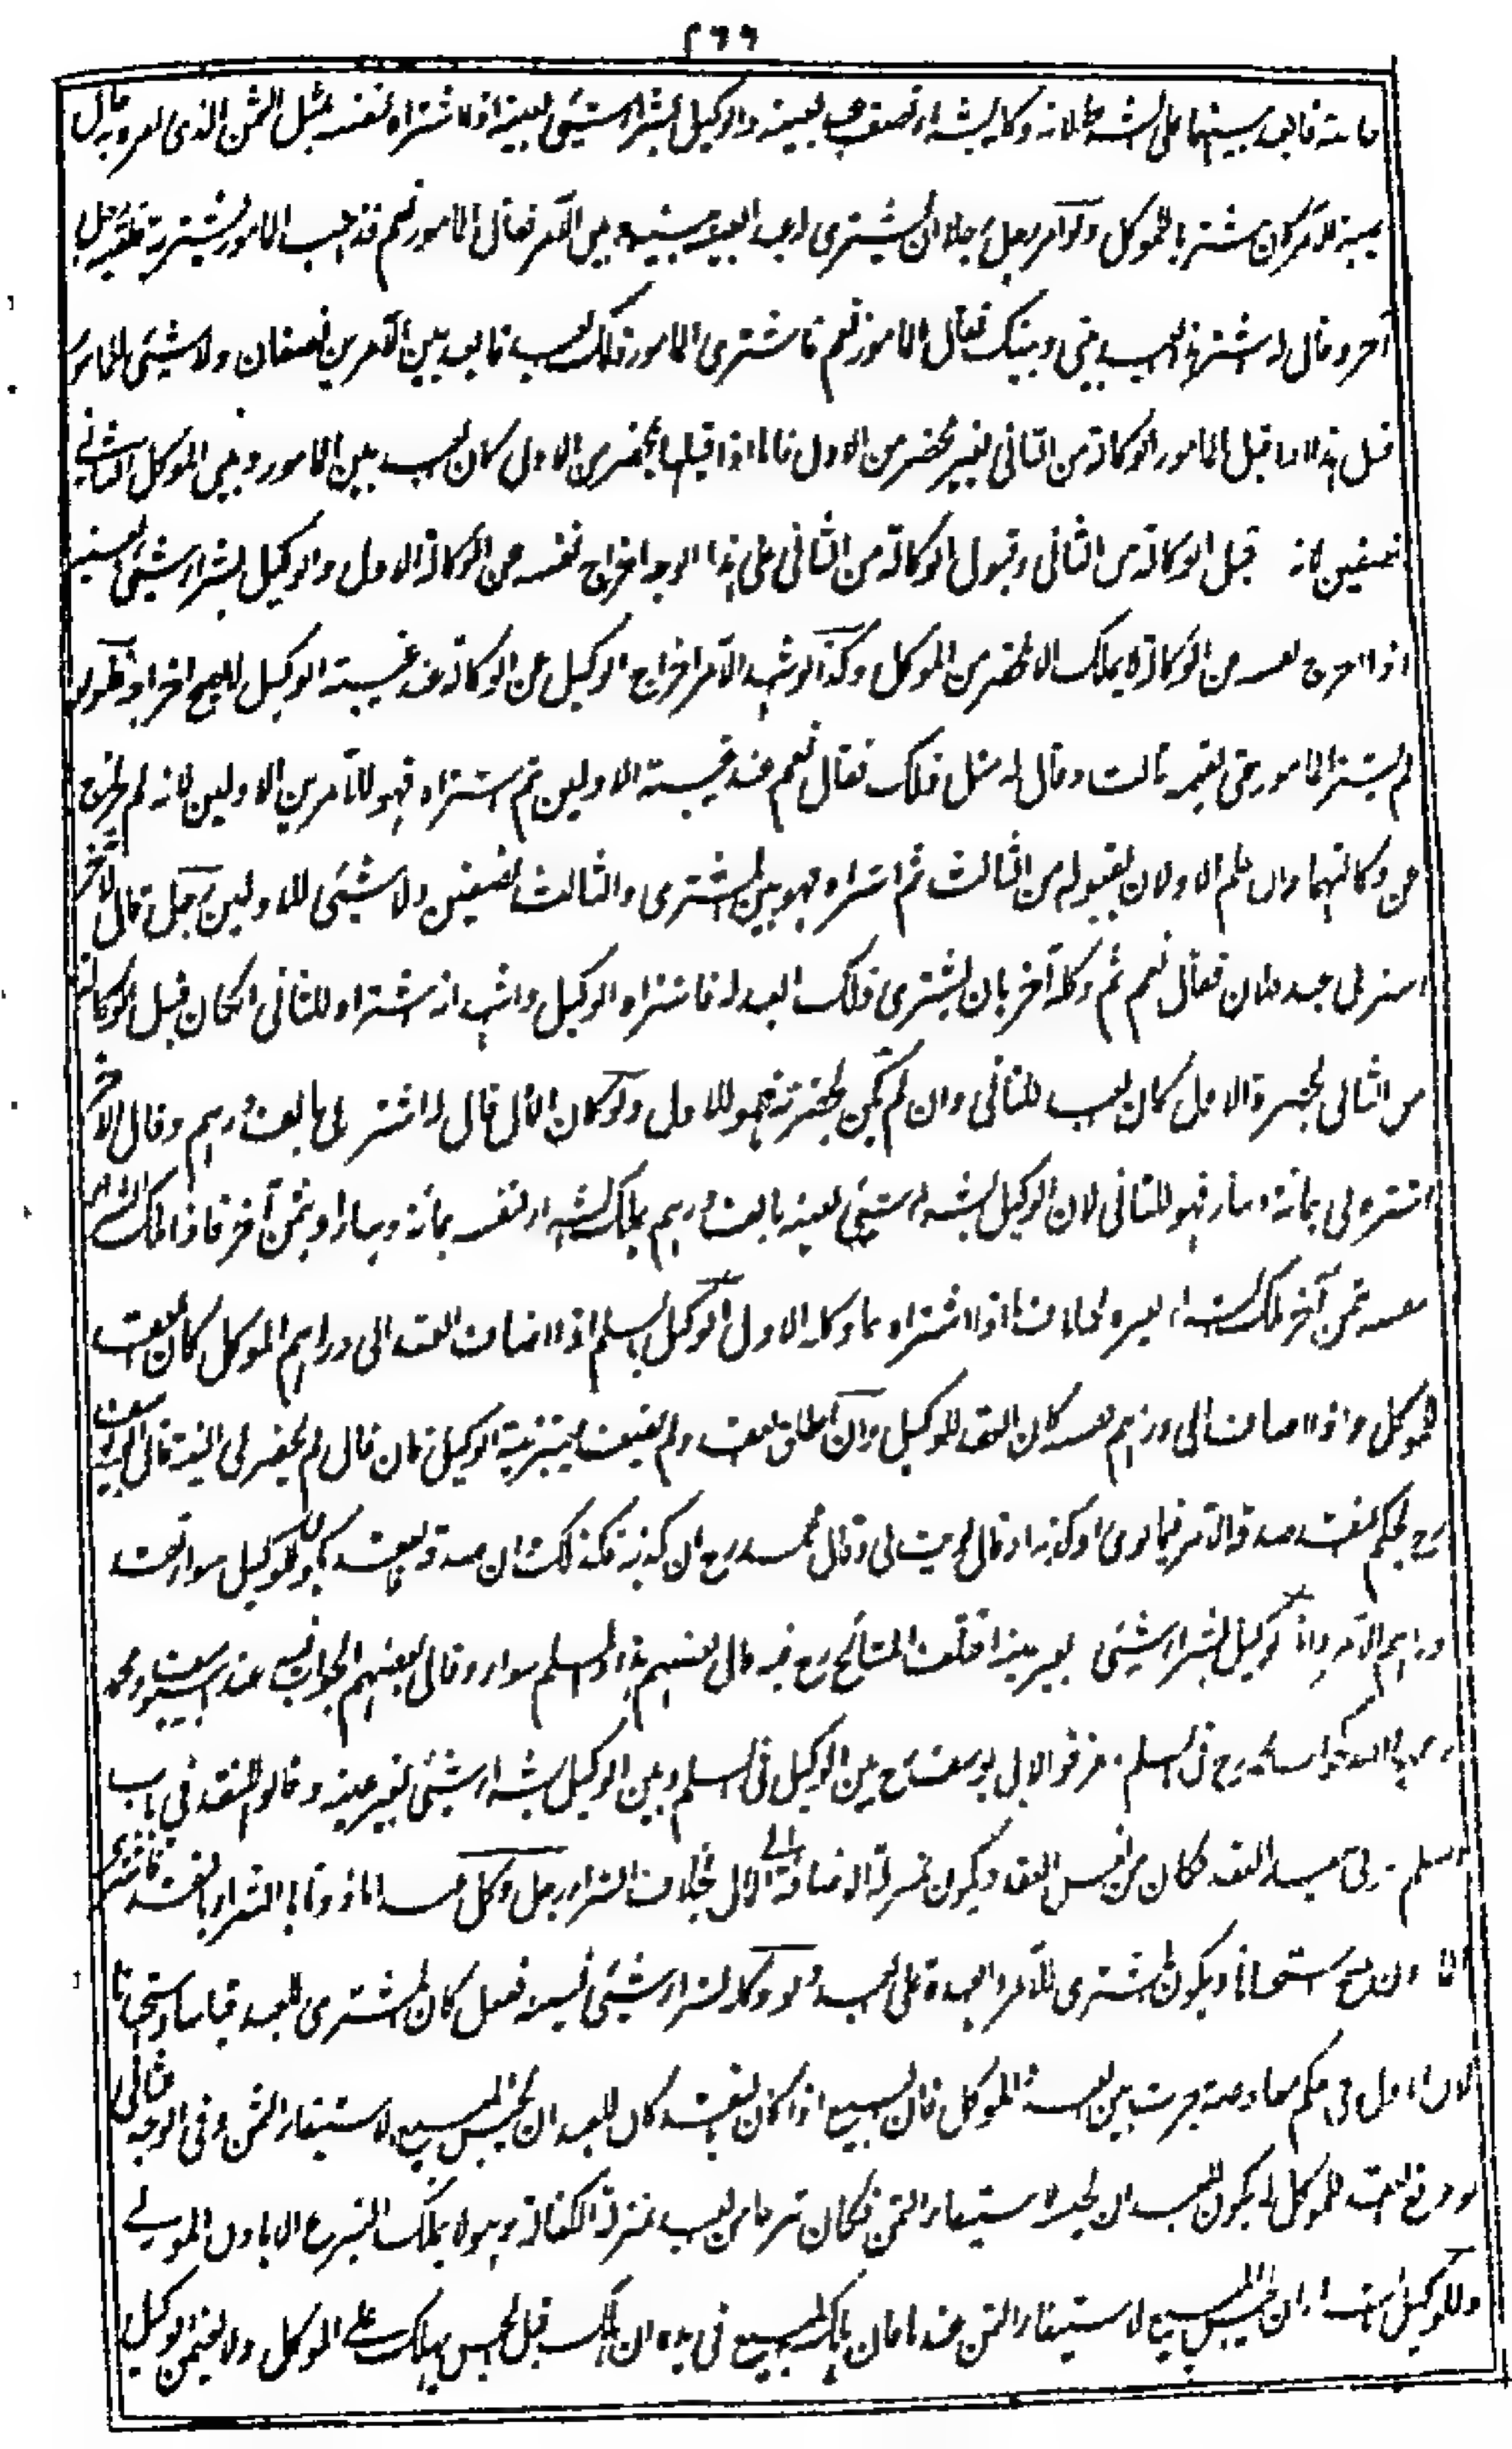 ٢٦٦
فالعبد بينهما على الشرط لانه وكله بشراء نصف بعينه والوكيل بشراء شيئ بعينه اذا اشتراه لنفسه بمثل الثمن الذى امر به قال
كان مشتريا للموكل ولو امر رجل رجلا ان يشترى العبد بينه وبين الآمر فقال المامور نعم فذهب المامور ليشتريه فلقيه رجل
آخر وقال له اشتر هذا العبد بينى وبينك فقال المامور نعم فاشترى المامور ذلك العبد فالعبد بين الآمرين نصفان ولا شيئ للمامور
قيل هذا اذا قبل المامور الوكالة من الثانى بغير محضر من الاول فاما اذا قبلها بمحضر من الاول كان العبد بين المامور وبين الموكل الثانى
نصفين لانه قبل الوكالة من الثانى وقبول الوكالة من الثانى على هذا الوجه اخراج نفسه عن الوكالة الاولى والوكيل بشراء شيئ بعينه
اذا اخرج نفسه من الوكالة لا يملك الا بمحضر من الموكل وكذا لو اشهد الآمر اخراج الوكيل عن الوكالة عند غيبة الوكيل لا يصح اخراجه ولو
لم يشتر المامور حتى لقيه ثالث وقال له مثل ذلك فقال نعم عند غيبة الاولين ثم اشتراه فهو للآمرين الاولين لانه لم يخرج
عن وكالتهما وان علم الاولان بقبوله من الثالث ثم اشتراه فهو بين المشترى والثالث نصفين ولا شيئ للاولين رجل قال لآخر
اشتر لى عبد فلان فقال نعم ثم وكله آخر بان يشترى ذلك العبد له فاشتراه الوكيل واشهد انه اشتراه للثانى ان كان قبل الوكالة
من الثانى بحضرة الاول كان العبد للثانى وان لم يكن بحضرته فهو للاول ولو كان الاول قال له اشتر لى بالف درهم وقال الآخر
اشتره لى بمائة دينار فهو للثانى لان الوكيل بشراء شيئ بعينه بالف درهم يملك الشراء لنفسه بمائة دينار او بثمن آخر فاذا ملك الشراء
لنفسه بثمن آخر ملك الشراء لغيره بخلاف ما اذا اشتراه بما وكله الاول الوكيل بالسلم اذا اضاف العقد الى دراهم الموكل كان العقد
للموكل واذا اضاف الى دراهم نفسه كان العقد للوكيل وان اطلق العقد ولم يضف يعتبر نية الوكيل فان قال لم يحضر لى النية قال ابو يوسف
رح يحكم النقد صدقه الآمر فيما نوى او كذبه او قال نويت لى وقال محمد رح ان كذبه فكذلك وان صدقه فالعقد يكون للوكيل سواء نقد
دراهم الآمر واما الوكيل بشراء شيئ بغير عينه اختلف المشائخ رح فيه قال بعضهم هذا والسلم سواء وقال بعضهم الجواب فيه عند ابى يوسف ومحمد
رح فى السلم فرقوا لابى يوسف رح بين الوكيل فى السلم وبين الوكيل بشراء شيئ بغير عينه وقالوا النقد فى باب
السلم العقد فكان من نفس العقد ويكون بمنزلة الاضافة الى المال بخلاف الشراء رجل وكل عبدا ماذونا بالشراء بالنقد فاشترى
ان يصح استحسانا ويكون المشترى للآمر والعهدة على العبد ولو وكله بشراء شيئ نسيئة ففعل كان المشترى للعبد قياسا واستحسانا
لان الاول فى حكم معاوضة جرت بين العبد والموكل فان المبيع اذا كان بالنقد كان للعبد ان يحبس المبيع لاستيفاء الثمن وفى الوجه الثانى
لو وقع العقد للموكل لم يكن للعبد ان يحبسه لاستيفاء الثمن فكان تبرعا من العبد بمنزلة الكفالة وهو لا يملك التبرع الا باذن المولى
وللوكيل بالشراء ان يحبس المبيع لاستيفاء الثمن عندنا فان هلك المبيع فى يده ان هلك قبل الحبس يهلك على الموكل ولا يضمن الوكيل